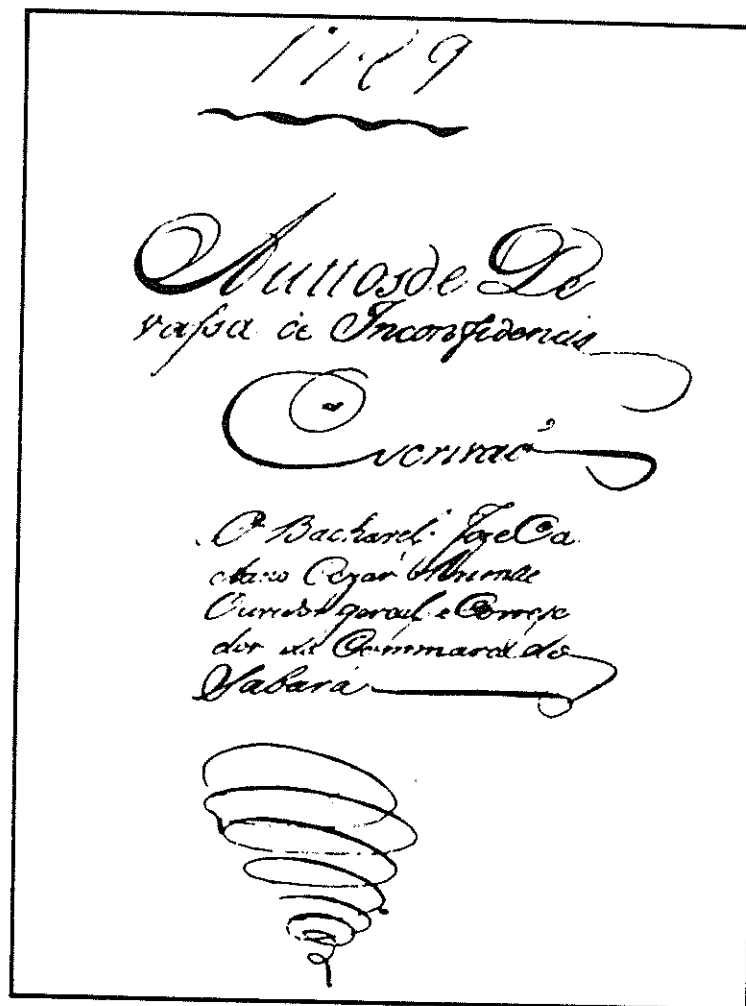 1789
Auttos de De
vassa de Inconfidencia
Escrivaõ
O Bacharel Jose Ca
etano Cezar Manitti
Ouvidor geral e Correge
dor da Commarca do
Sabará